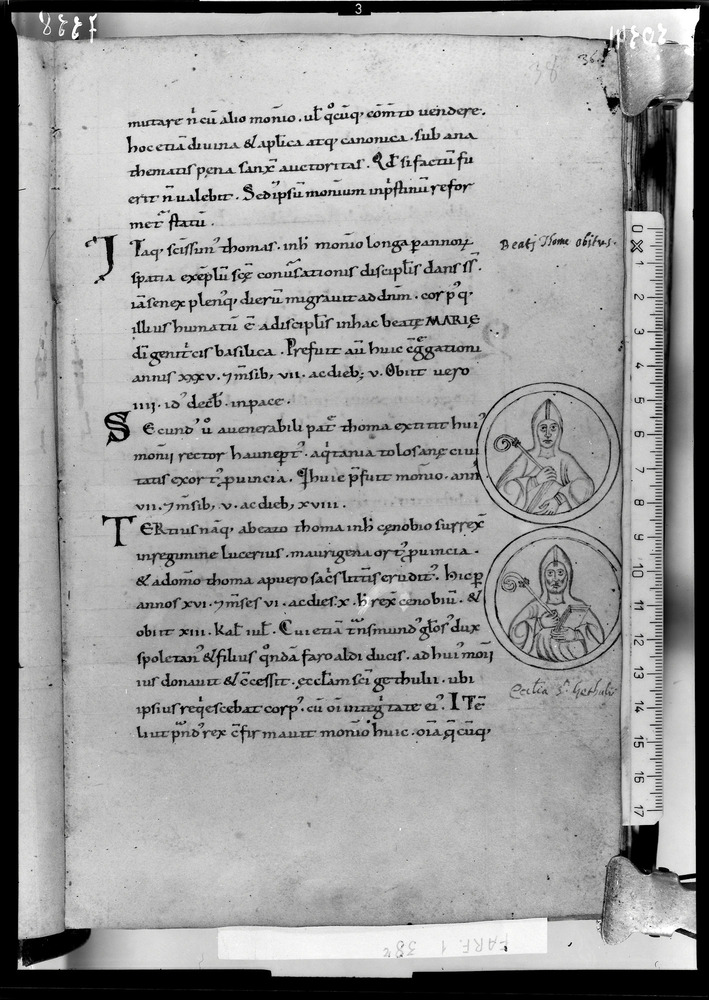 mutare n̄ cū alio monr̄io · ul̄ q̊cūq; com̄to uendere.
hoc etiā diuina & aplica atq; canonica · sub ana
thematis pena sanx̄ auctoritas. Qd̄ si factū fu
erit n̄ ualebit. Sed ipsū monr̄ium in p̄stinū refor
met᷑ statū.
ITaq; sc̄issim᷒ thomas · in h̄ monr̄io longa p annoꝝ
spatia exēplū scę conuer̄sationis disciplis dans ss̄.
iā senex plenusq; dierū migrauit ad dn̄m · corp᷒q;
illius humatū ē a disciplis in hac beatę MARIĘ
dī genitcis basilica. Prefuit aū huic cḡgationi
annis xxxv. ⁊ m̄sib; vii. ac dieb; v. Obiit uero
iiii. id᷒ decb̄. in pace.
SEcund᷒ ů a uenerabili pat̄ thoma extitit hui᷒
monr̄ii rector haunept᷒. aq̇tania tolosanę ciui
tatis exort᷒ p̱uincia. Qui huic p̄fuit monr̄io. ann̄
vii. ⁊ m̄sib; v. ac dieb; xviii.
TERtius nāq; a beato thoma in h̄ cęnobio surrex̄
in regimine lucerius. maurigena ort᷒ p̱uincia.
& a domo thoma a puero sac̄s litt̄is erudit᷒. hic p
annos xvi. ⁊ m̄ses vi. ac dies x. h̄ rex̄ cenobiū. &
obiit xiii. kal̄ iul̄. Cui etiā tn̄smund᷒ glos᷒ dux
spoletan᷒ & filius q̊ndā faroaldi ducis. ad hui᷒ mon̄
ius donauit & cc̄essit. ęccl̄am sc̄i gethulii. ubi
ipsius req̇escebat corp᷒. cū oī inteġtate ei᷒. ITē
liutpn̄d᷒ rex cf̄irmauit monr̄io huic. oīa q̄cūq;
Beatj Thome obitus.
Ecclia S. Gethulii
38
36
3
0 1 2 3 4 5 6 7 8 9 10 11 12 13 14 15 16 17
FARF. 1 38r
7338